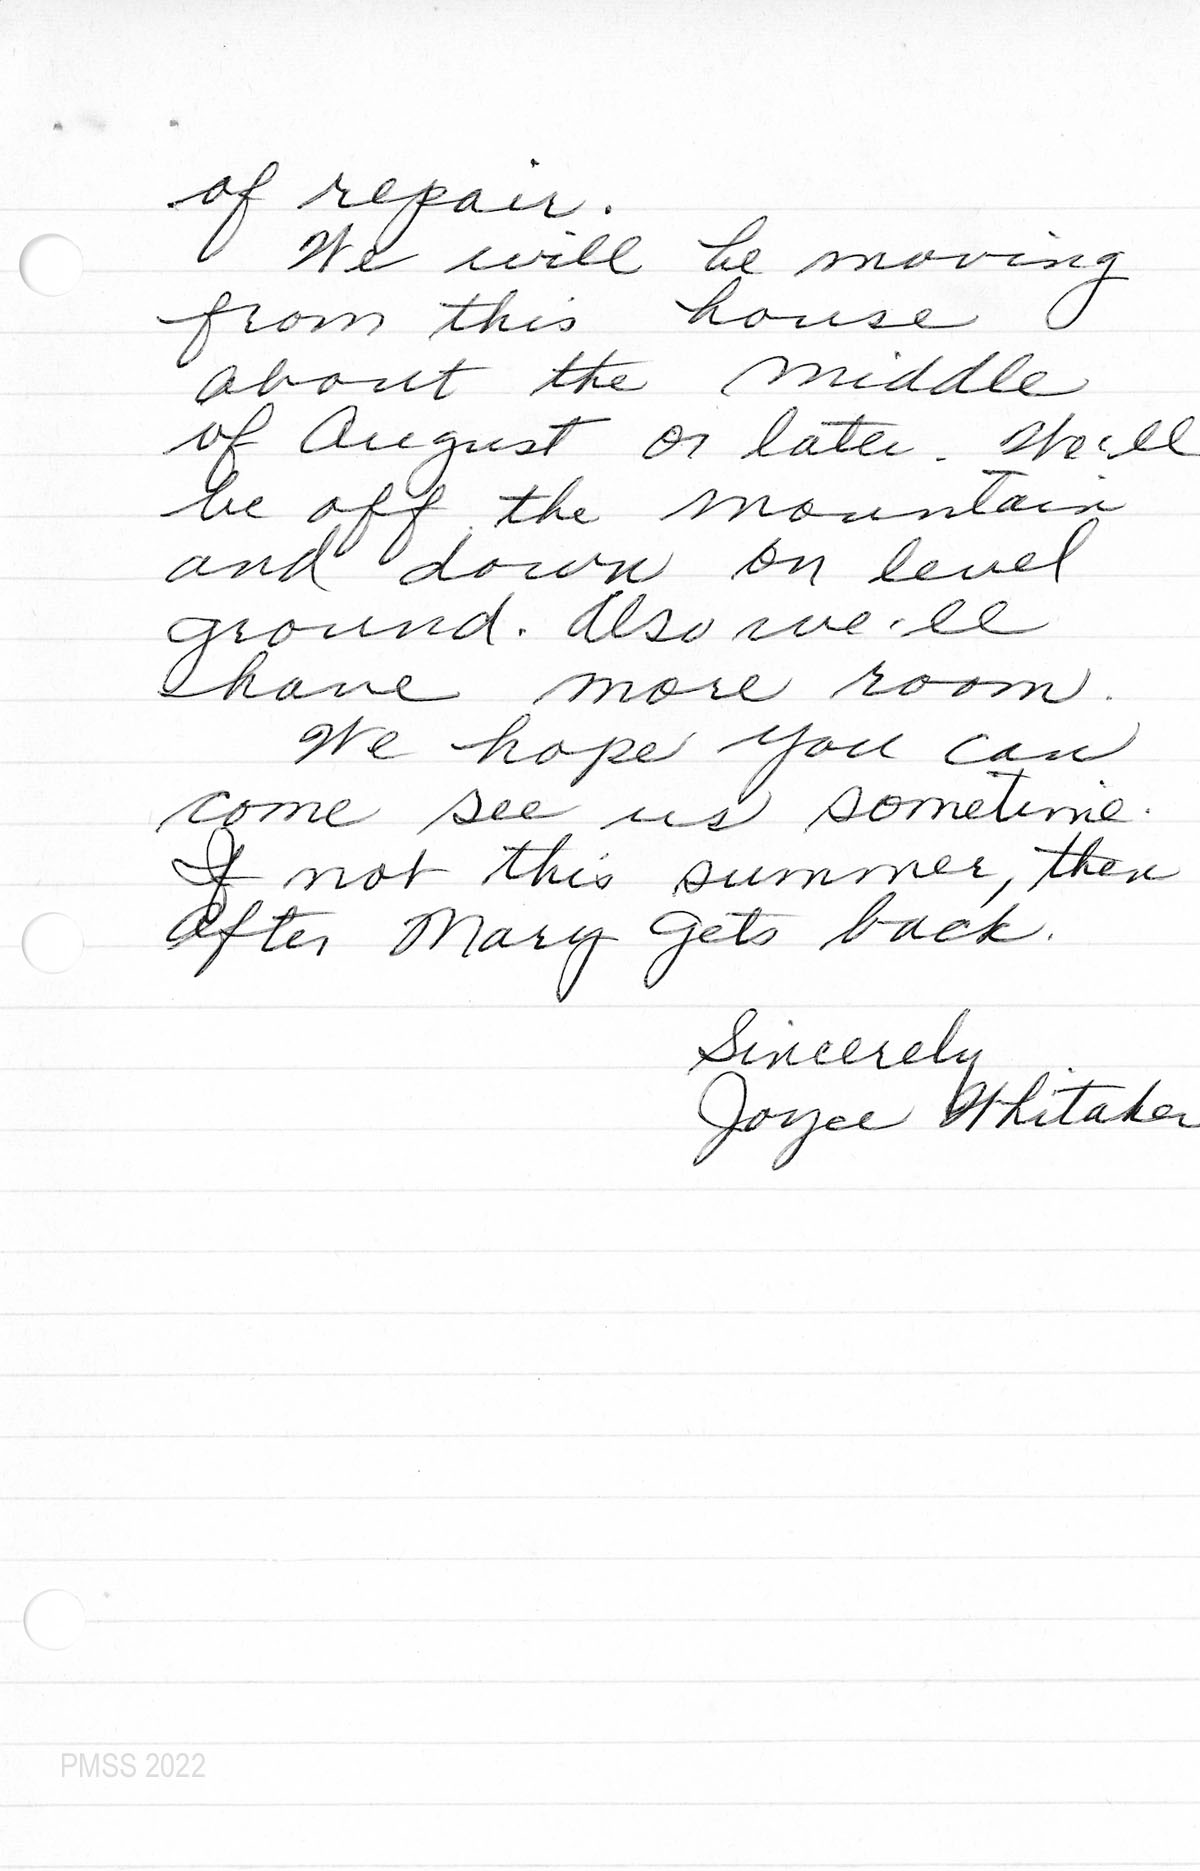 of repair.
We will be moving
from this house
about the middle
of August or later. We'll
be off the mountain
and down on level
ground. Also we'll
have more room.
We hope you can
come see us sometime.
If not this summer, then
after Mary gets back.
Sincerely
Joyce Whitaker
PMSS 2022